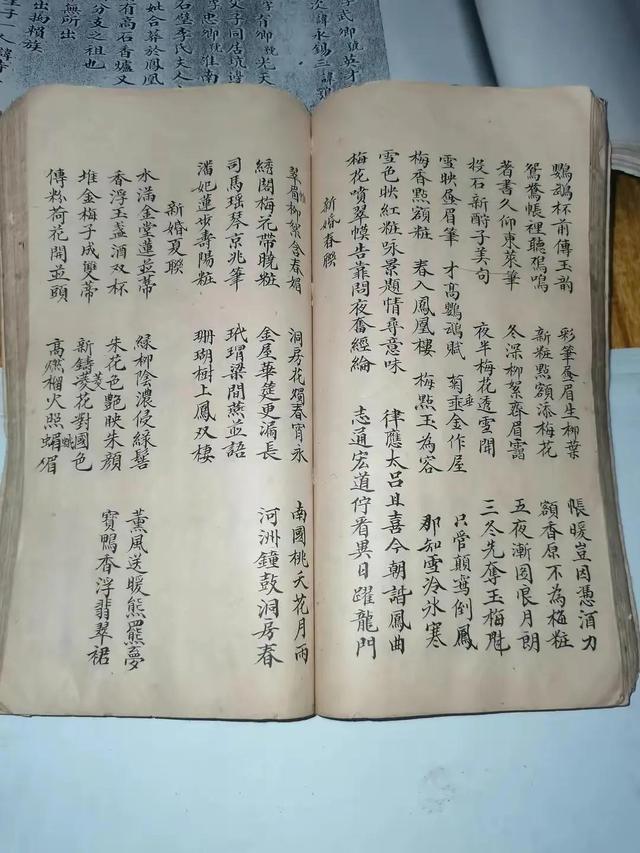 鸚鵡杯前傳玉韵 彩筆畫眉生柳葉 帳暖豈因憑酒力
鴛鴦帳裡聽鳴 新粧點額添梅花 額香原不為梅粧
著書久仰東萊筆 冬深柳絮齊眉靄 五夜漸圓恨月朗
投石新酹子美句 夜半梅花透雪聞 三冬先奪玉梅魁
雪映畫眉筆 才高鸚鵡賦 菊垂金作屋 只管顛鸞倒鳳
梅香點額粧 春入鳳凰樓 梅點玉為容 那知雪冷冰寒
雪色映紅粧咏景題情尋意味 律應太呂且喜今朝諧鳳曲
梅花噴翠幙告靠問夜奮經綸 志通宏道佇看異日躍龍門
新婚春聯
翠眉柳絮含春媚 洞房花燭春宵永 南國桃夭花月雨
綉閣梅花帶曉粧 金屋華筵更漏長 河洲鐘鼓洞房春
司馬瑶琴京兆筆 玳瑁梁間燕並語
潘妃蓮步壽陽粧 珊瑚樹上鳳双棲
新婚夏聯
水滿金堂蓮並蒂 綠柳陰濃侵綠鬂 薰風送暖熊羆夢
香浮玉盞酒双杯 朱花色艷映朱顏 寶鴨香浮翡翠裙
堆金梅子成雙蒂 新鑄菱花對國色
傅粉荷花開並頭 高燃榴火照蛾眉